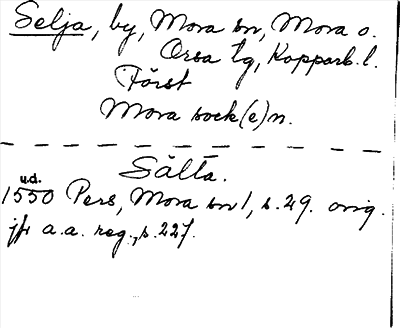 Selja, by, Mora sn, Mora o.
Orsa tg, Kopparb. l.
Först
Mora sock(e)n.
Sälta.
u.d.
1550 Pers, Mora sn 1, s. 29. orig.
jfr a.a. reg., s. 227.